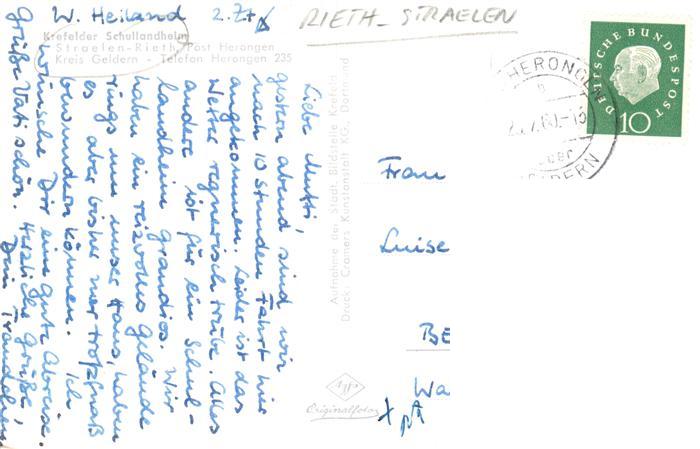 W. Heiland 2. Zt
RIETH - STRAELEN
Krefelder Schullandheim
Straelen-Rieth, Post Herongen
Kreis Geldern - Telefon Herongen 235
Liebe Mutti,
gestern abend sind wir
nach 10 Stunden Fahrt hier
angekommen. Leider ist das
Wetter regnerisch trübe. Alles
andere ist für ein Schul-
landheim grandios. Wir
haben ein reizvolles Gelände
rings um unser Haus, haben
es aber bisher nur tropfnaß
bewundern können. Ich
wünsche Dir eine gute Abreise.
Grüße Vati schön. Herzliche Grüße,
Dein
Aufnahme der Städt. Bildstelle Krefeld
Druck: Cramers Kunstanstalt KG., Dortmund
Agfa
Originalfoto
Frau
Luise
BE
Wa
DEUTSCHE BUNDESPOST
10
HERONGEN